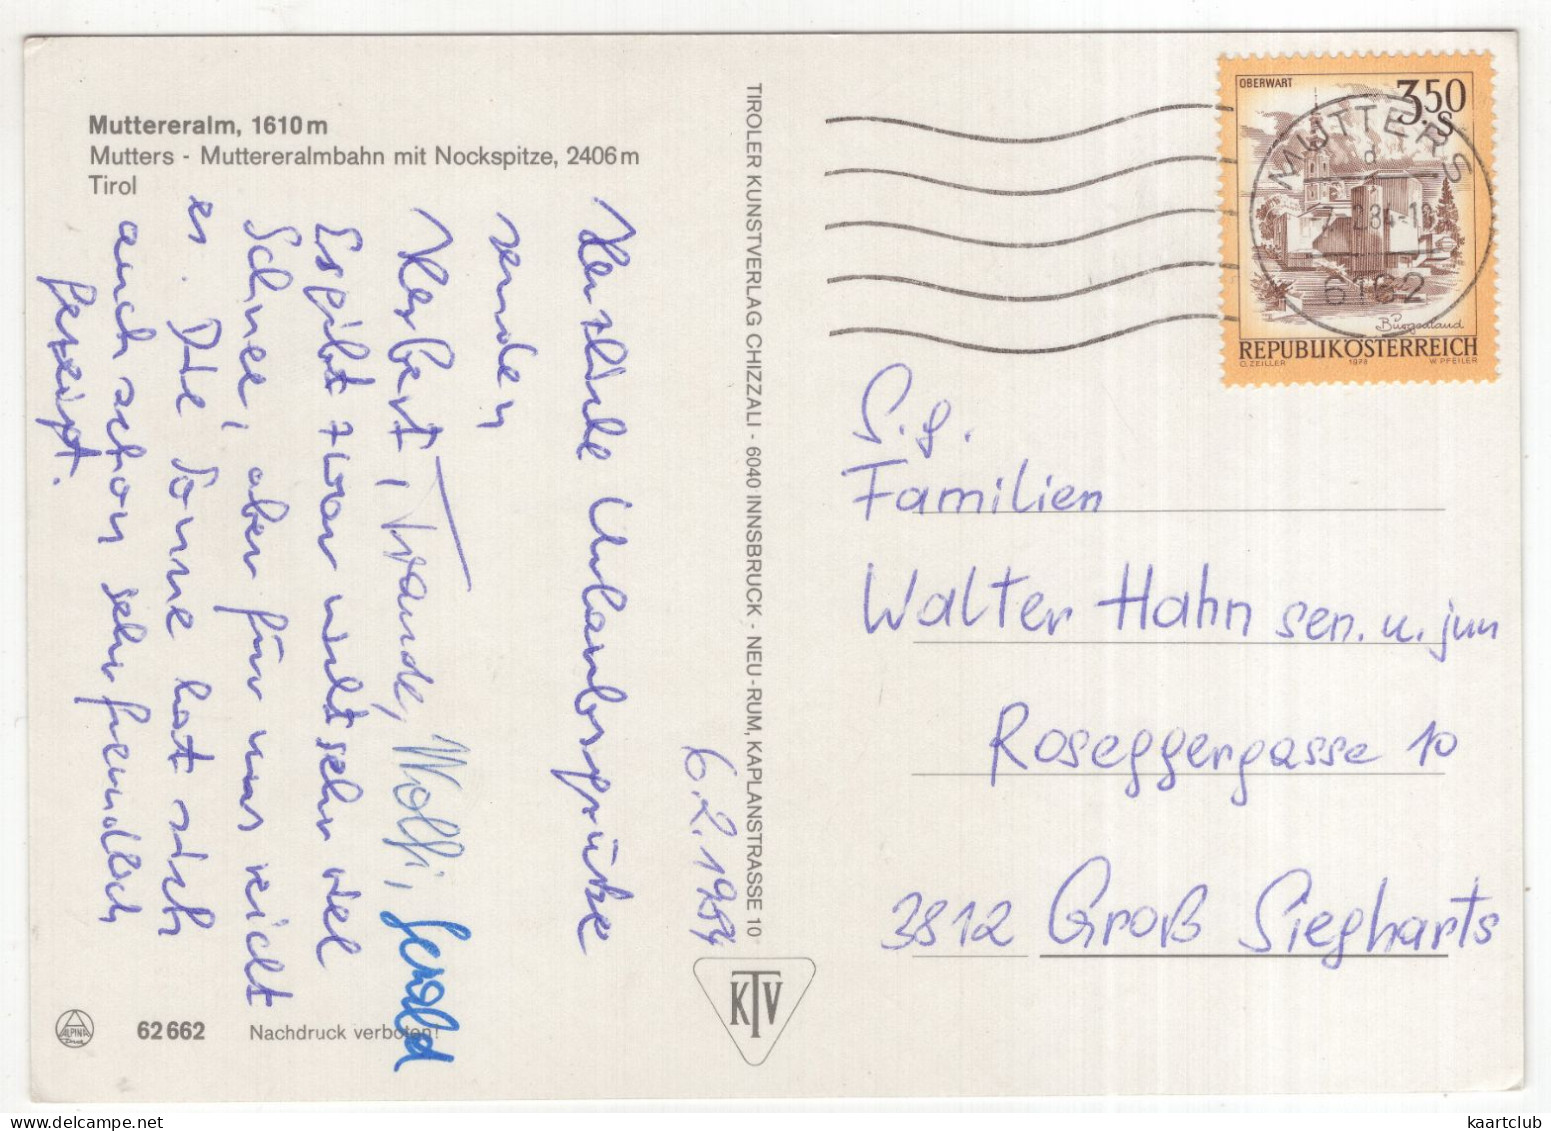 Muttereralm, 1610 m
Mutters - Muttereralmbahn mit Nockspitze, 2406 m
Tirol
6.2.1984
Herzliche Urlaubsgrüße
senden
Herbert, Traude, Wolfi, Gerald
Es gibt zwar nicht sehr viel
Schnee, aber für uns reicht
er. Die Sonne hat sich
auch schon sehr freundlich
gezeigt.
62 662 Nachdruck verboten!
ALPINA
TIROLER KUNSTVERLAG CHIZZALI - 6040 INNSBRUCK - NEU-RUM, KAPLANSTRASSE 10
KTV
OBERWART
3.50
S
Burgenland
REPUBLIK ÖSTERREICH
O. ZEILLER 1978 W. PFEILER
MUTTERS
6162
Familien
Walter Hahn sen. u. jun
Roseggergasse 10
3812 Groß Siegharts
kaartclub